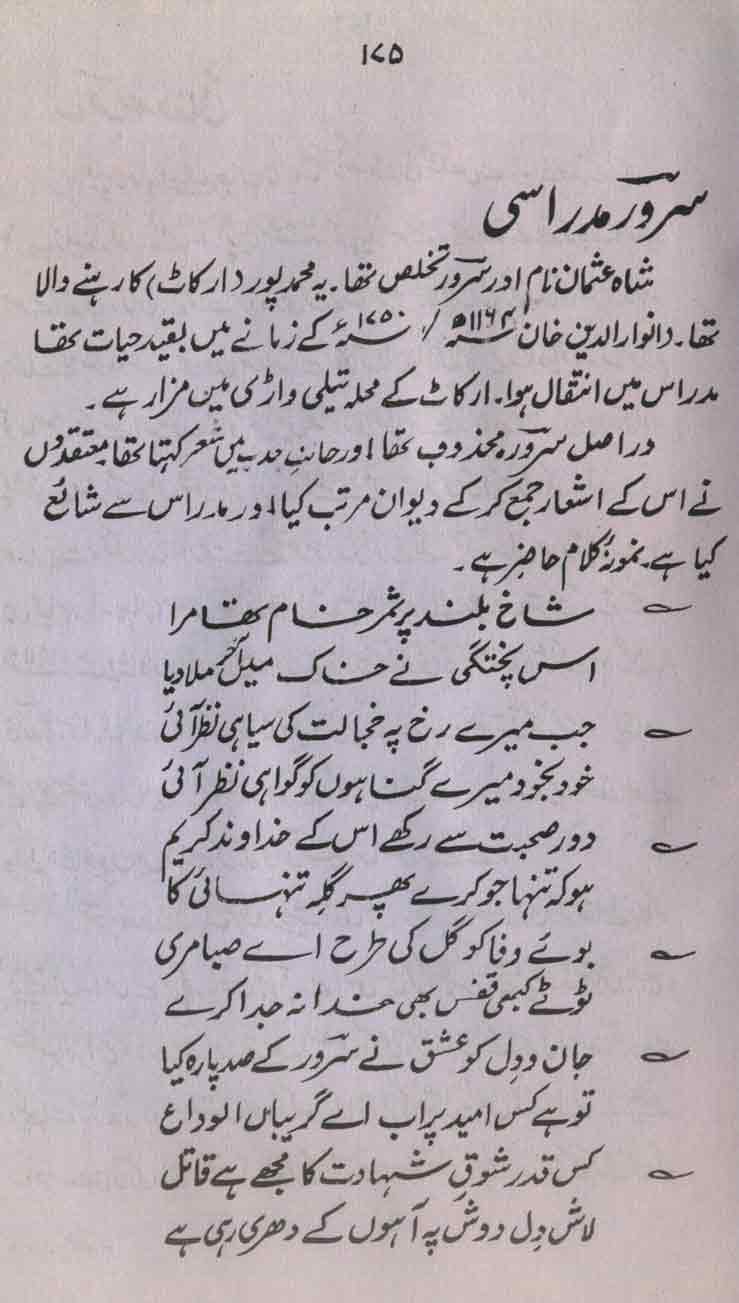 ۱۷۵
سرورؔ مدراسی
شاہ عثمان نام اور سرورؔ تخلص تھا۔ یہ محمد پور (ارکاٹ) کا رہنے والا
تھا۔ (انوار الدین خان ۱۱۶۴ھ / ۱۷۵۰ء کے زمانے میں بقید حیات تھا
مدراس میں انتقال ہوا۔ ارکاٹ کے محلہ تیلی واڑی میں مزار ہے۔
دراصل سرورؔ مجذوب تھا اور جذب میں شعر کہتا تھا معتقدوں
نے اس کے اشعار جمع کر کے دیوان مرتب کیا اور مدراس سے شائع
کیا ہے۔ نمونۂ کلام حاضر ہے۔
شاخِ بلند پر ثمر خام تھا مرا
اس پختگی نے خاک میں آخر ملا دیا
جب میرے رخ پہ خجالت کی سیاہی نظر آئی
خود بخود میرے گناہوں کو گواہی نظر آئی
دور صحبت سے رکھے اس کے خداوند کریم
ہو کہ تنہا جو کرے پھر گلہ تنہائی کا
بوئے وفا کو گل کی طرح اے صبا مری
ٹوٹے کبھی قفس بھی خدا نہ جدا کرے
جان و دِل کو عشق نے سرورؔ کے صد پارہ کیا
تو ہے کس امید پر اب اے گریباں الوداع
کس قدر شوقِ شہادت کا مجھے ہے قاتل
لاش دِل دوش پہ آہوں کے دھری رہی ہے